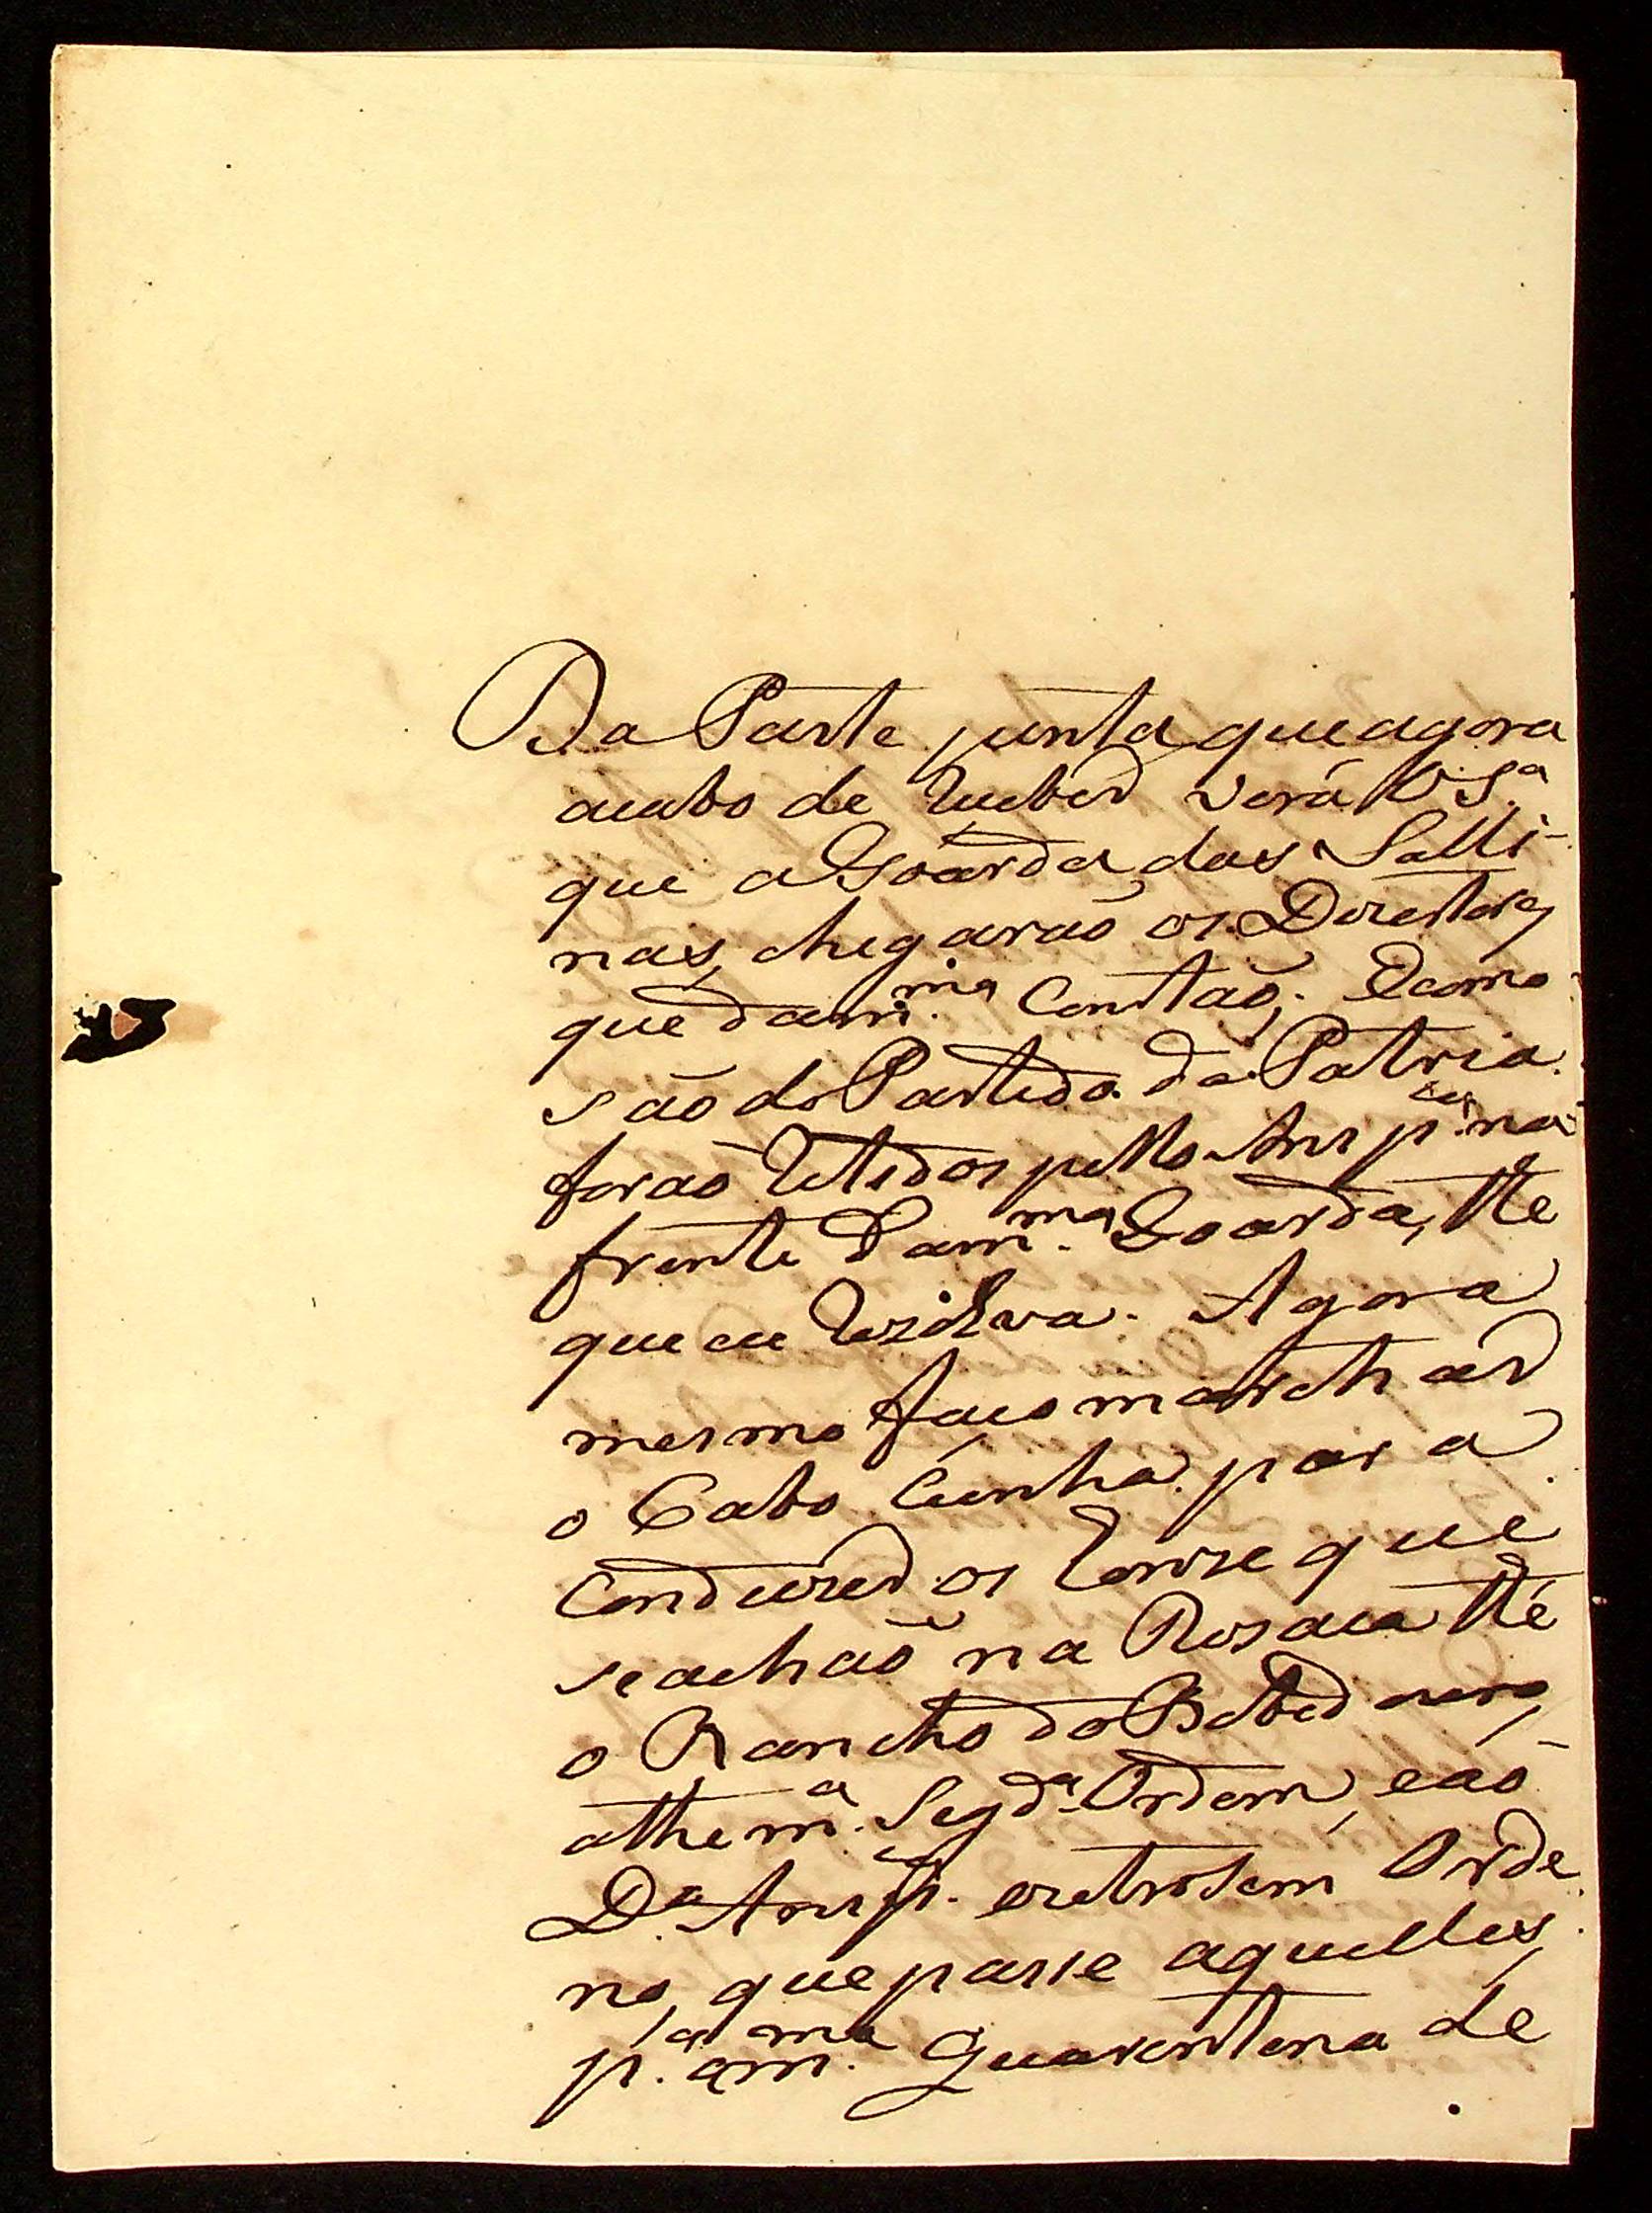 Da Parte junta, que agora
acabo de receber verá V. S.ª
que a Goarda das Salli-
nas, chegarão os Dezertores,
que dam.ma Constão; Ecomo
são do Partido da Patria.
forão retidos pello Ansp.ça na
frente Dam.ma Goarda, tté
que eu rezolva. Agora
mesmo faço marchar
o Cabo Cunha. para
Conduzir os Treze que
se achão na Rosaca tté
o Rancho do Bebedouro,
athe m.ª Segd.ª Ordem, e ao
D.º Ansp.ça outrosem Orde
no, que passe aquelles,
p.ª am.ma Guarentena de